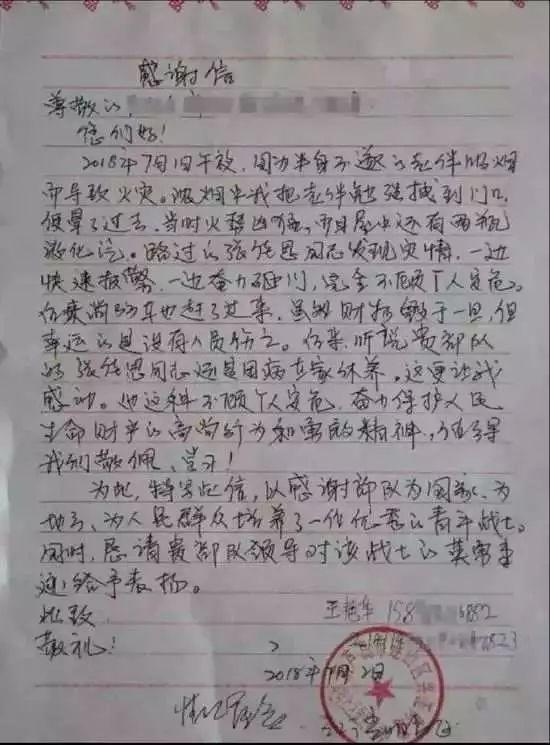 感谢信
尊敬的
您们好!
2018年7月1日午夜,因为半身不遂的老伴吸烟
而导致火灾。浓烟中我把老伴勉强拽到门口,
便晕了过去,当时火势凶猛,而且屋中还有两瓶
液化汽。路过的张能恩同志发现灾情,一边
快速报警,一边奋力砸门,完全不顾个人安危。
后来消防车也赶了过来,虽然财物毁于一旦,但
幸运的是没有人员伤亡。后来,听说贵部队
的张能恩同志还是因病在家休养。这更让我
感动。他这种不顾个人安危,奋力保护人民
生命财产的高尚行为和勇敢精神,值得
我们敬佩、学习!
为此,特写此信,以感谢部队为国家、为
地方、为人民群众培养了一位优秀的青年战士。
同时,恳请贵部队领导对该战士的英勇事
迹给予表扬。
此致
敬礼!
王艳华 158 6882
8823
2018年7月2日
情况属实